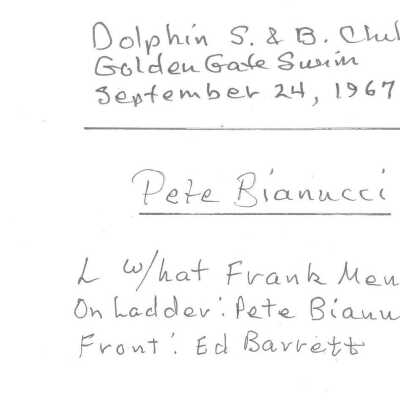 Dolphin S. & B. Clu
Golden Gate Swim
September 24, 1967
Pete Bianucci
L w/hat Frank Men
On Ladder: Pete Bianu
Front: Ed Barrett